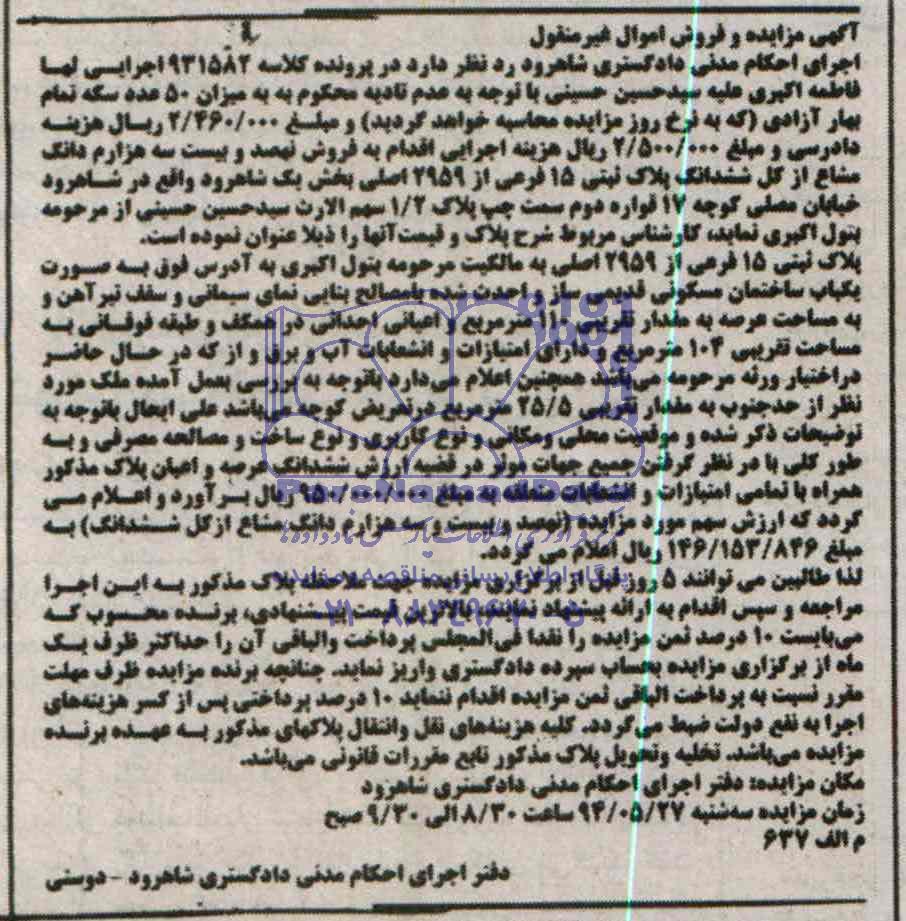 آگهی مزایده و فروش اموال غیرمنقول
اجرای احکام مدنی دادگستری شاهرود رد نظر دارد در پرونده کلاسه ۹۳۱۵۸۲ اجرایی لها
فاطمه اکبری علیه سیدحسین حسینی با توجه به عدم تادیه محکوم به به میزان ۵۰ عدد سکه تمام
بهار آزادی (که به نرخ روز مزایده محاسبه خواهد گردید) و مبلغ ۲/۴۶۰/۰۰۰ ریال هزینه
دادرسی و مبلغ ۲/۵۰۰/۰۰۰ ریال هزینه اجرایی اقدام به فروش نهصد و بیست سه هزارم دانگ
مشاع از کل ششدانگ پلاک ثبتی ۱۵ فرعی از ۲۹۵۹ اصلی بخش یک شاهرود واقع در شاهرود
خیابان مصلی کوچه ۱۷ فواره دوم سمت چپ پلاک ۱/۲ سهم الارث سیدحسین حسینی از مرحومه
بتول اکبری نماید، کارشناس مربوط شرح پلاک و قیمت آنها را ذیلا عنوان نموده است.
پلاک ثبتی ۱۵ فرعی از ۲۹۵۹ اصلی به مالکیت مرحومه بتول اکبری به آدرس فوق به صورت
یکباب ساختمان مسکونی قدیمی ساز و احدث شده بامصالح بنایی نمای سیمانی و سقف تیرآهن و
به مساحت عرصه به مقدار تقریبی مترمربع و اعیانی احداثی در همکف و طبقه فوقانی به
مساحت تقریبی ۱۰۴ مترمربع و دارای امتیازات و انشعابات آب و برق و از که در حال حاضر
دراختیار ورثه مرحومه می‌باشد همچنین اعلام می‌دارد باتوجه به بررسی بعمل آمده ملک مورد
نظر از حدجنوب به مقدار تقریبی ۲۵/۵ مترمربع درتعریض کوچه می‌باشد علی ایحال باتوجه به
توضیحات ذکر شده و موقعیت محلی ومکانی و نوع کاربری و نوع ساخت و مصالحه مصرفی و به
طور کلی با در نظر گرفتن جمیع جهات موثر در قضیه ارزش ششدانگ عرصه و اعیان پلاک مذکور
همراه با تمامی امتیازات و انشعابات متعلقه به مبلغ ۹۵۰/۰۰۰/۰۰۰ ریال برآورد و اعلام می
گردد که ارزش سهم مورد مزایده (نهصد و بیست و سه هزارم دانگ مشاع ازکل ششدانگ) به
مبلغ ۱۴۶/۱۵۳/۸۴۶ ریال اعلام می گردد.
لذا طالبین می توانند ۵ روز قبل از برگزاری مزایده جهت ملاحظه پلاک مذکور به این اجرا
مراجعه و سپس اقدام به ارائه پیشنهاد نمایند. بالاترین قیمت پیشنهادی، برنده محسوب که
می‌بایست ۱۰ درصد ثمن مزایده را نقدا فی‌المجلس پرداخت والباقی آن را حداکثر ظرف یک
ماه از برگزاری مزایده بحساب سپرده دادگستری واریز نماید. چنانچه برنده مزایده ظرف مهلت
مقرر نسبت به پرداخت الباقی ثمن مزایده اقدام ننماید ۱۰ درصد پرداختی پس از کسر هزینه‌های
اجرا به نفع دولت ضبط می‌گردد. کلیه هزینه‌های نقل وانتقال پلاکهای مذکور به عهده برنده
مزایده می‌باشد. تخلیه وتحویل پلاک مذکور تابع مقررات قانونی می‌باشد.
مکان مزایده: دفتر اجرای احکام مدنی دادگستری شاهرود
زمان مزایده سه‌شنبه ۹۴/۰۵/۲۷ ساعت ۸/۳۰ الی ۹/۳۰ صبح
م الف ۶۳۷
دفتر اجرای احکام مدنی دادگستری شاهرود - دوستی